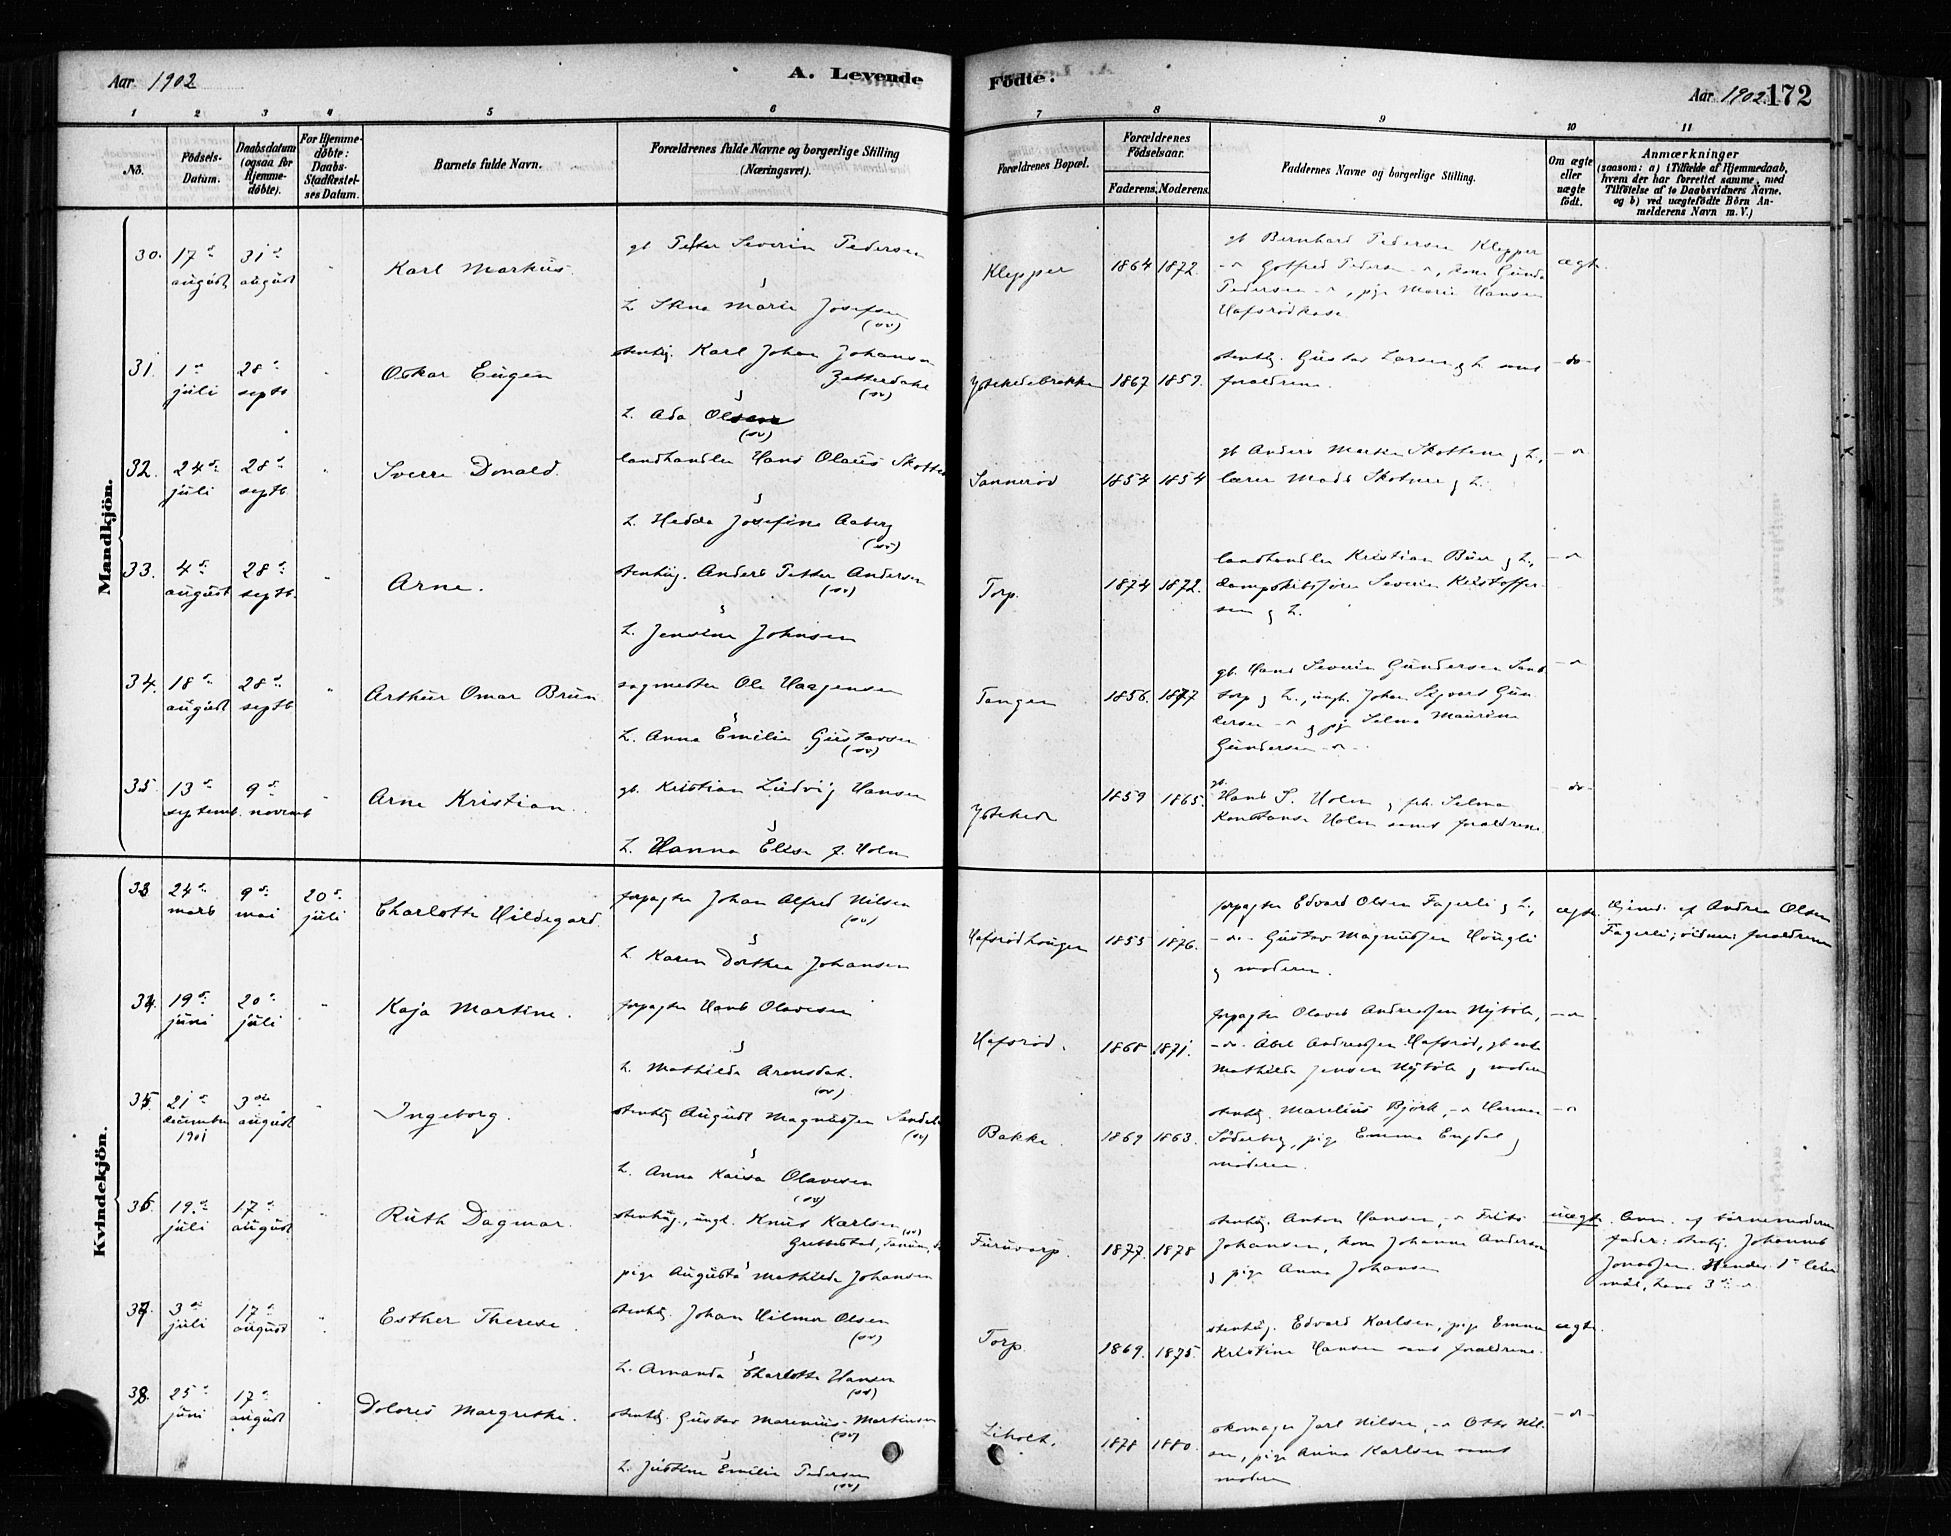 Aar 1902
A. Levende
Födte.
Aar 1902
172
1 2 3 4 5 6 7 8 9 10 11
No.
Födsels-Datum.
Daabsdatum (ogsaa for Hjemme-döbte).
For Hjemme-döbte: Daabs-Stadfæstel-ses Datum.
Barnets fulde Navn.
Forældrenes fulde Navne og borgerlige Stilling (Næringsvei).
Forældrenes Bopæl.
Forældrenes Födselsaar.
Faderens. Moderens.
Faddernes Navne og borgerlige Stilling.
Om ægte eller uægte födt.
Anmærkninger
(saasom: a) i Tilfælde af Hjemmedaab, hvem der har forrettet samme, med Tilföielse af to Daabsvidners Navne, og b) ved uægtefödte Börn An-melderens Navn m. V.)
Mandkjön.
30. 17 august 31 august
Karl Markus
gb Petter Severin Pedersen
h. Marie Josefsen (sv)
Klepper 1864 1872.
gb Bernhard Pedersen Klepper
Gotfred Pedersen, kone Gunda
Pedersen, pige Marie Hansen
Hafsrødkase.
ægte.
31. 1 juli 28 septb
Oskar Eugen
stenhug. Karl Johan Johansen
Zetterdahl (sv)
h. Ada Olsen (sv)
Ystehedebrække 1867 1859.
stenhug. Gustav Larsen & h. samt
forældrene.
- do -
32. 24 juli 28 septb
Sverre Donald.
landhandler Hans Olaus Skotten
h. Hedda Josefine Aaberg (sv)
Sannerød 1854 1854
gb Anders Martin Skottene & h.,
lærer Mads Skotene & h.
33. 4 august 28 septb.
Arne.
stenhug. Anders Petter Andersen (sv)
h. Jensine Johnsen
Torp. 1874 1872.
landhandler Kristian Buer & h.,
dampskibsfører Severin Kristoffer-
sen & h.
34. 18 august 28 septb
Arthur Omar Brun
sagmester Ole Haagensen
h. Anna Emilie Gustavsen (sv)
Tangen 1856. 1877
gb. Hans Severin Gundersen Sand-
torp & h., ungk. Johan Sigvart Gun-
dersen & pige Selma Maurine
Gundersen
35. 13 septemb. 9 novemb
Arne Kristian.
gb. Kristian Ludvig Hansen
h. Hanna Elise f. Holm
Ystehede 1859 1865.
gb. Hans S. Holm & frk. Selma
Konstanse Holm samt forældrene.
- do -
Kvindekjön.
33 24 marts 9 mai 20 juli
Charlotte Hildegard
forpagter Johan Alfred Nilsen (sv)
h. Karen Dorthea Johansen
Hafsrødhougen 1855 1876.
forpagter Edvard Olsen Fagerli & h.,
- do - Gustav Magnussen Hougli
& moderen.
ægte.
Hjemd. af Andrea Olsen
Fagerli; vidner: forældrene
34. 19 juni 20 juli
Kaja Martine.
forpagter Hans Olavesen
h. Mathilde Aronsdat. (sv)
Hafsrød. 1868 1871.
forpagter Olaves Andreassen Nybøle,
- do - Abel Andreassen Hafsrød, gb enke
Mathilde Jensen Nybøle & moderen
35. 21 december 1901 3 august
Ingeborg.
stenhug August Magnussen (sv)
h. Anna Kaisa Olavesen (sv)
Bakke. 1869 1863.
stenhug. Marelius Björk, Herman
Söderberg, pige Emma Engdal &
moderen.
36. 19. juli 17 august
Ruth Dagmar.
stenhug., ungk. Knut Karlsen (sv)
Grebbestad, Tanum,
pige Augusta Mathilde Johansen
Furuvarp. 1877. 1878
stenhug. Anton Hansen, Frits
Johansen, kone Johanne Andersen
& pige Anna Johansen
uægte.
Anm. af barnemoderens
fader: stenhug. Johannes
Jonassen. Hendes 1 leier-
mål, hans 3
37. 3 juli 17 august
Esther Therese.
stenhug. Johan Hilmer Olsen (sv)
h. Amanda Charlotte Hansen (sv)
Torp. 1869. 1875.
stenhug. Edvard Karlsen, pige Emma
Kristine Hansen samt forældrene.
ægte.
38. 25 juni 17 august
Dolores Margrethe.
stenhug. Gustav Marenius Martinsen (sv)
h. Justine Emilie Pedersen (sv)
Liholt. 1878 1880.
skomager Jarl Nilsen, Otto Nil-
sen, pige Anna Karlsen samt
moderen